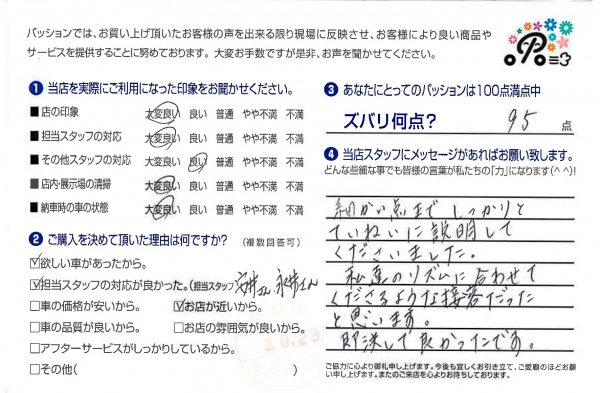 パッションでは、お買い上げ頂いたお客様の声を出来る限り現場に反映させ、お客様により良い商品や
サービスを提供することに努めております。大変お手数ですが是非、お声を聞かせてください。
❶ 当店を実際にご利用になった印象をお聞かせください。
■ 店の印象 大変良い 良い 普通 やや不満 不満
■ 担当スタッフの対応 大変良い 良い 普通 やや不満 不満
■ その他スタッフの対応 大変良い 良い 普通 やや不満 不満
■ 店内・展示場の清掃 大変良い 良い 普通 やや不満 不満
■ 納車時の車の状態 大変良い 良い 普通 やや不満 不満
❷ ご購入を決めて頂いた理由は何ですか? (複数回答可)
☑欲しい車があったから。
☑担当スタッフの対応が良かった。(担当スタッフ 安井さん 永井さん
□車の価格が安いから。 ☑お店が近いから。
□車の品質が良いから。 □お店の雰囲気が良いから。
□アフターサービスがしっかりしているから。
□その他( )
❸ あなたにとってのパッションは100点満点中
ズバリ何点? 95 点
❹ 当店スタッフにメッセージがあればお願い致します。
どんな些細な事でも皆様の言葉が私たちの「力」になります(^^)!
細かい点まで しっかりと
ていねいに説明して
くださいました。
私達のリズムに合わせて
くださるような接客だった
と思います。
即決して良かったです。
ご協力に心より御礼申し上げます。今後も宜しくお引き立て、ご愛顧のほどお願
い申し上げます。またのご来店を心よりお待ちしております。